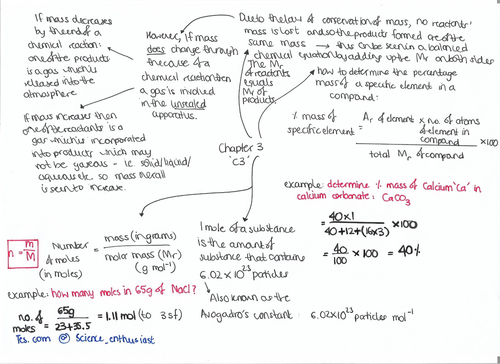 If mass decreases
by the end of a
chemical reaction:
one of the products
is a gas which is
released into the
atmosphere
However, if mass
does change through
the course of a
chemical reaction then
a gas is involved
in the unsealed
apparatus.
Due to the law of conservation of mass, no reactants'
mass is lost and so the products formed are of the
same mass → this can be seen in a balanced
chemical equation by adding up the Mr on both sides
The Mr
of reactants
equals
Mr of
products.
how to determine the percentage
mass of a specific element in a
compound:
% mass of
specific element
=
Ar of element × no. of atoms
of element in
compound
total Mr of compound
×100
If mass increases then
one of the reactants is a
gas which is incorporated
into products which may
not be gaseous - i.e. solid/liquid/
aqueous etc. so mass overall
is seen to increase.
Chapter 3
'C3'
example: determine % mass of Calcium 'Ca' in
calcium carbonate: CaCO3
= 40×1
40+12+(16×3)
×100
= 40
100
× 100 = 40%
n = m
M
Number
of moles
(in moles)
= mass (in grams)
molar mass (Mr)
(g mol⁻¹)
1 mole of a substance
is the amount of
substance that contains
6.02×10²³ particles
Also known as the
Avogadro's constant: 6.02×10²³ particles mol⁻¹
example: how many moles in 65g of NaCl?
no. of
moles
= 65g
23+35.5
= 1.11 mol (to 3 sf)
Tes.com @ Science_enthusiast